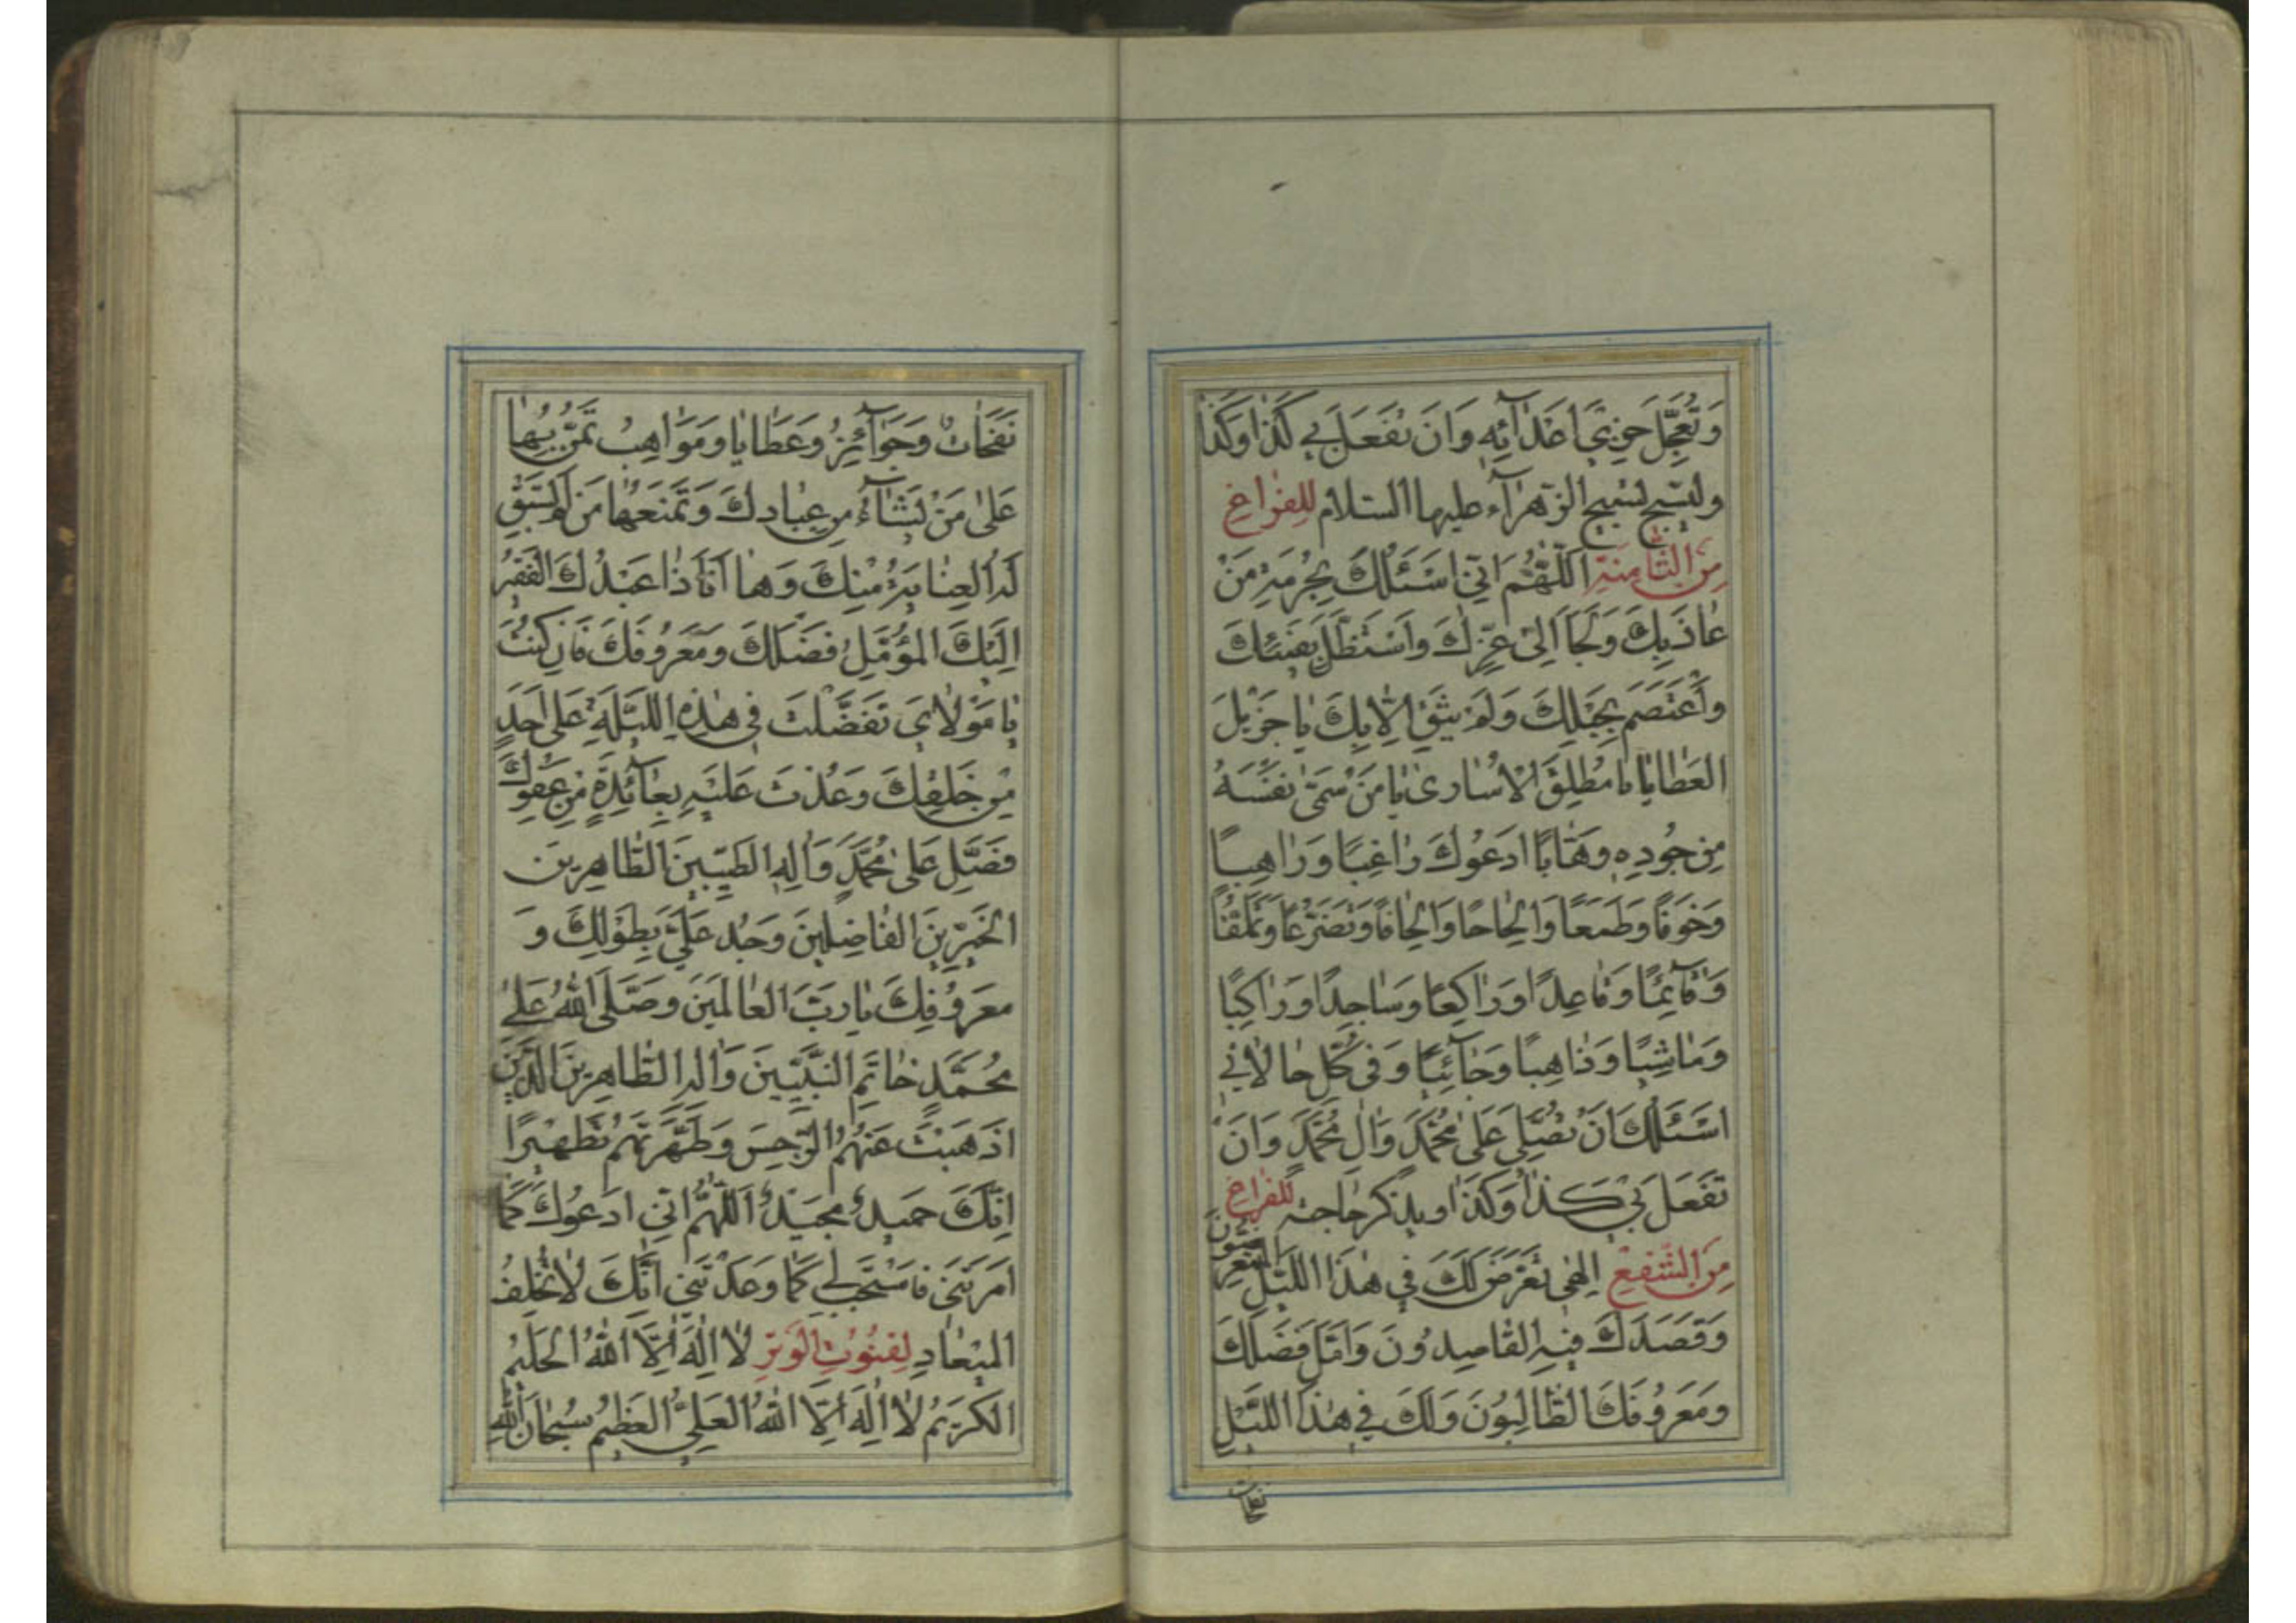 وَتُعَجِّلَ خِزْيَ اَعْدٰٓائِهِ وَاَنْ تَفْعَلَ بِي كَذٰا وَكَذٰا
وليسبّح تسبيح الزّهرآء عليها السّلام للِفَراغِ
مِنَ الثّامِنَةِ اَللّٰهُمَّ اِنّي اَسْئَلُكَ بِحُرْمَةِ مَنْ
عٰاذَ بِكَ وَلَجَأَ اِلىٰ عِزِّكَ وَاسْتَظَلَّ بِفَيْئِكَ
وَاعْتَصَمَ بِحَبْلِكَ وَلَمْ يَثِقْ اِلّٰا بِكَ يٰا جَزيلَ
العَطٰايٰا يٰا مُطْلِقَ الْاُسٰارىٰ يٰا مَنْ سَمّىٰ نَفْسَهُ
مِنْ جُودِهِ وَهّٰابًا اَدْعُوكَ رٰاغِبًا وَرٰاهِبًا
وَخَوْفًا وَطَمَعًا وَاِلْحٰاحًا وَاِلْحٰافًا وَتَضَرُّعًا وَتَمَلُّقًا
وَقٰٓائِمًا وَقٰاعِدًا وَرٰاكِعًا وَسٰاجِدًا وَرٰاكِبًا
وَمٰاشِيًا وَذٰاهِبًا وَجٰٓائِيًا وَفي كُلِّ حٰالٰاتي
اَسْئَلُكَ اَنْ تُصَلِّيَ عَلىٰ مُحَمَّدٍ وَاٰلِ مُحَمَّدٍ وَاَنْ
تَفْعَلَ بي كَذٰا وَكَذٰا ويذكر حاجته للِفَراغِ
مِنَ الشَّفْعِ اِلٰهي تَعَرَّضَ لَكَ فِي هٰذَا اللَّيْلِ المُتَعَرِّضُونَ
وَقَصَدَكَ فيهِ القٰاصِدُونَ وَاَمَّلَ فَضْلَكَ
وَمَعْرُوفَكَ الطّٰالِبُونَ وَلَكَ فِي هٰذَا اللَّيْلِ
نفحات
نَفَحٰاتٌ وَجَوٰٓائِزُ وَعَطٰايٰا وَمَوٰاهِبُ تَمُنُّ بِهٰا
عَلىٰ مَنْ تَشٰٓاءُ مِنْ عِبٰادِكَ وَتَمْنَعُهٰا مَنْ لَمْ تَسْبِقْ
لَهُ العِنٰايَةُ مِنْكَ وَهٰا اَنَا ذٰا عَبْدُكَ الفَقيرُ
اِلَيْكَ المُؤَمِّلُ فَضْلَكَ وَمَعْرُوفَكَ فَاِنْ كُنْتَ
يٰا مَوْلٰايَ تَفَضَّلْتَ في هٰذِهِ اللَّيْلَةِ عَلىٰ اَحَدٍ
مِنْ خَلْقِكَ وَعُدْتَ عَلَيْهِ بِعٰٓائِدَةٍ مِنْ عَفْوِكَ
فَصَلِّ عَلىٰ مُحَمَّدٍ وَاٰلِهِ الطَّيِّبينَ الطّٰاهِرينَ
الخَيِّرينَ الفٰاضِلينَ وَجُدْ عَلَيَّ بِطَوْلِكَ وَ
مَعْرُوفِكَ يٰا رَبَّ العٰالَمينَ وَصَلَّى اللهُ عَلىٰ
مُحَمَّدٍ خٰاتَمِ النَّبِيّينَ وَاٰلِهِ الطّٰاهِرينَ الَّذينَ
اَذْهَبْتَ عَنْهُمُ الرِّجْسَ وَطَهَّرْتَهُمْ تَطْهيرًا
اِنَّكَ حَميدٌ مَجيدٌ اَللّٰهُمَّ اِنّي اَدْعُوكَ كَمٰا
اَمَرْتَني فَاسْتَجِبْ لي كَمٰا وَعَدْتَني اِنَّكَ لٰا تُخْلِفُ
الميعٰادِ لِقُنُوتِ الوَتْرِ لٰا اِلٰهَ اِلَّا اللهُ الحَليمُ
الكَريمُ لٰا اِلٰهَ اِلَّا اللهُ العَلِيُّ العَظيمُ سُبْحٰانَ اللهِ